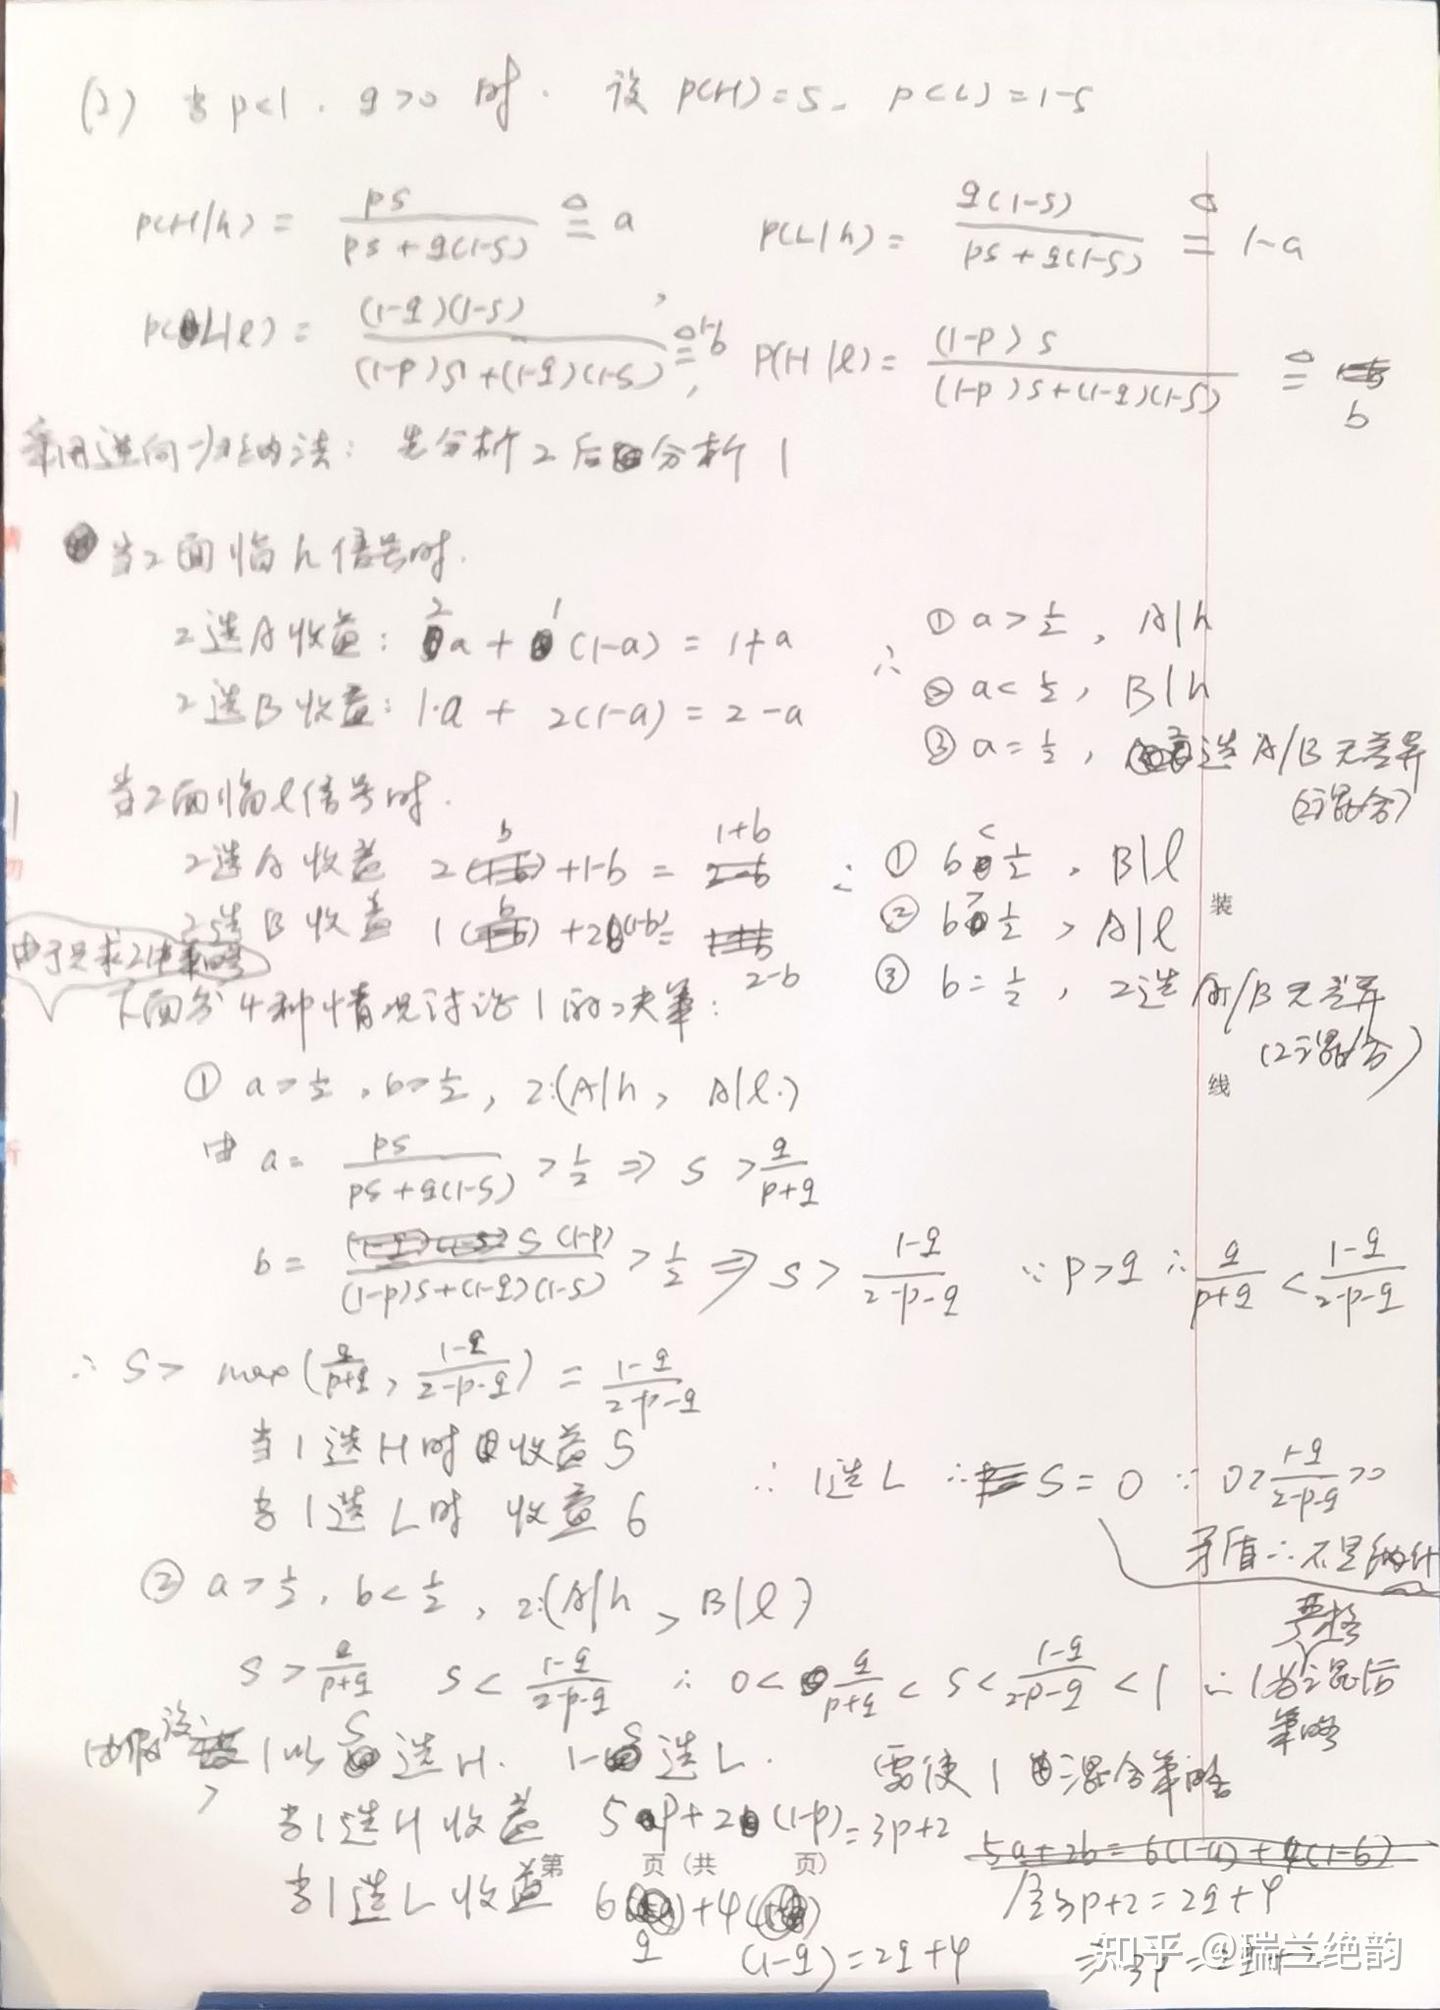 (2) 当 p<1, q>0 时. 设 P(H)=s, P(L)=1-s
P(H|h) = ps / (ps+q(1-s)) ≜ a P(L|h) = q(1-s) / (ps+q(1-s)) ≜ 1-a
P(L|l) = (1-q)(1-s) / ((1-p)s+(1-q)(1-s)) ≜ 1-b, P(H|l) = (1-p)s / ((1-p)s+(1-q)(1-s)) ≜ b
采用逆向归纳法: 先分析2后分析1
当2面临h信号时.
2选A收益: 2a + 1(1-a) = 1+a
2选B收益: 1·a + 2(1-a) = 2-a
∴ ① a>1/2, A|h
② a<1/2, B|h
③ a=1/2, 2选A/B无差异
(2混合)
当2面临l信号时.
2选A收益 2b+1-b = 1+b
2选B收益 1b+2(1-b)= 2-b
∴ ① b<1/2, B|l
② b>1/2, A|l
③ b=1/2, 2选A/B无差异
(2混合)
装
线
由于是求2纯策略
下面分4种情况讨论1的决策:
① a>1/2, b>1/2, 2:(A|h, A|l)
由 a= ps / (ps+q(1-s)) >1/2 ⇒ s > q/(p+q)
b= s(1-p) / ((1-p)s+(1-q)(1-s)) >1/2 ⇒ s > (1-q)/(2-p-q) ∵ p>q ∴ q/(p+q) < (1-q)/(2-p-q)
∴ s> max(q/(p+q), (1-q)/(2-p-q)) = (1-q)/(2-p-q)
当1选H时收益5
当1选L时 收益6
∴ 1选L ∴ s=0 ∵ 0>(1-q)/(2-p-q)>0
矛盾∴不是纳什
② a>1/2, b<1/2, 2:(A|h, B|l)
s > q/(p+q) s < (1-q)/(2-p-q) ∴ 0< q/(p+q) < s < (1-q)/(2-p-q) <1 ∴ 1为严格混合
策略
1以s选H. 1-s选L. 需使1混合策略
当1选H收益 5p+2(1-p)=3p+2
当1选L收益 6q+4(1-q)=2q+4
5a+2b=6(1-a)+4(1-b)
3p+2=2q+4
⇒ 3p=2q+2
第 页 (共 页)
知乎 @瑞兰绝韵